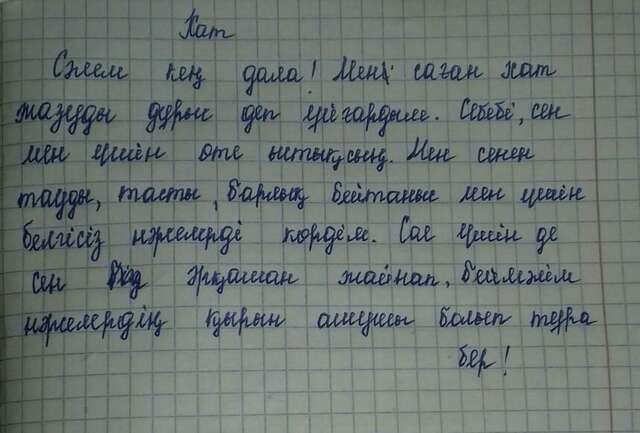 Хат
Сәлем кең дала! Мен саған хат
жазуды дұрыс деп шығардым. Себебі, сен
мен үшін өте ыстықсың. Мен сенен
тауды, тасты, барлық бейтаныс мен үшін
белгісіз нәрселерді көрдім. Сол үшін де
сен әрқашан жайнап, беймәлім
нәрселердің қырын ашушы болып тұра
бер!